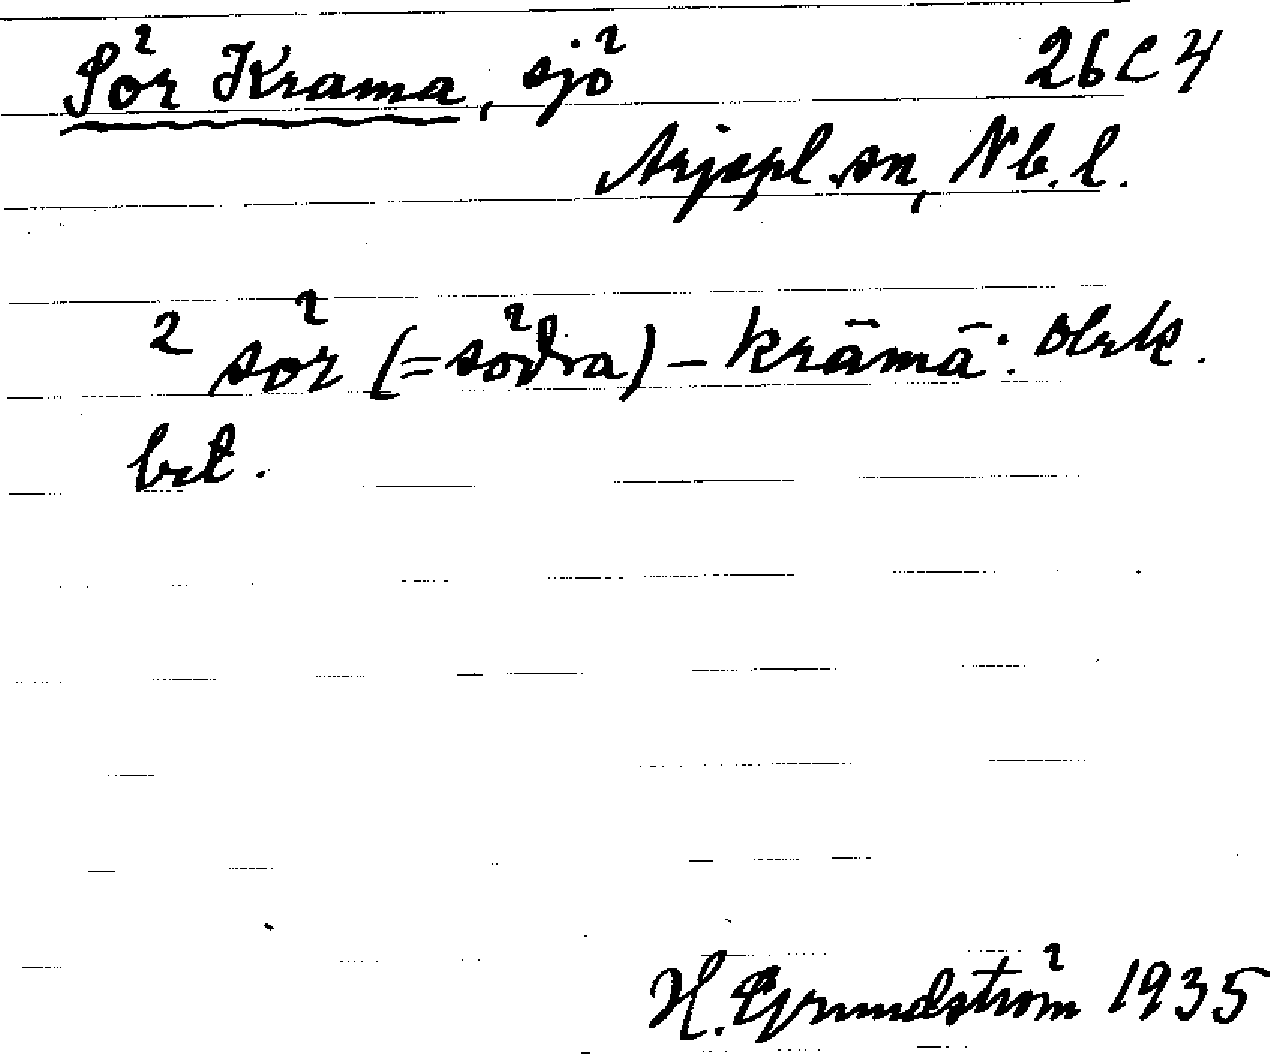 Sör Krama, sjö 26 C 4
Arjepl. sn, Nb. l.
2 sör (= södra) - krāmā: Obek.
bet.
H. Grundström 1935